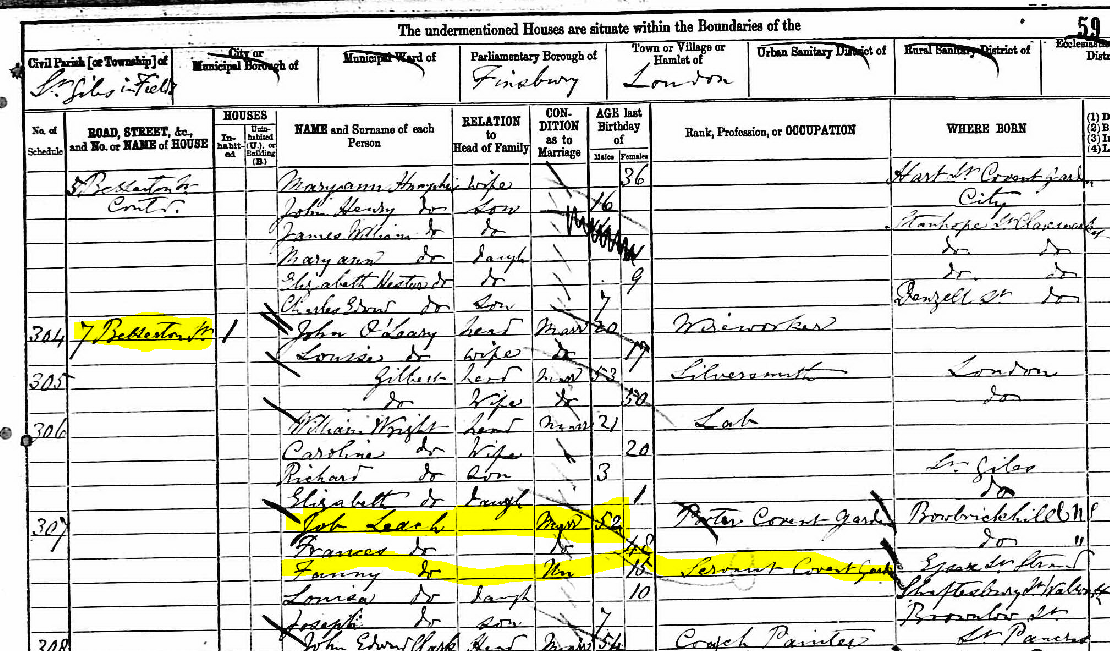 The undermentioned Houses are situate within the Boundaries of the
59
Civil Parish [or Township] of
City or Municipal Borough of
Municipal Ward of
Parliamentary Borough of
Town or Village or Hamlet of
Urban Sanitary District of
Rural Sanitary District of
St Giles in Fields
Finsbury
London
No. of Schedule
ROAD, STREET, &c., and No. or NAME of HOUSE
HOUSES
In-habit-ed
Unin-habited (U.), or Building (B.)
NAME and Surname of each Person
RELATION to Head of Family
CON-DITION as to Marriage
AGE last Birthday of
Males
Females
Rank, Profession, or OCCUPATION
WHERE BORN
5 Betterton St Mary ann wife 36 Hart St Covent Gard
Contd. John Henry do Son 16 City
James William do do Stanhope St
Mary ann do daugh do do
Elizabeth Hester do do 9 do do
Charles Edwd do son 7 Denzell St do
304 7 Betterton St 1 John O'Leary head Marr 20 Wireworker
Louisa do wife do 17
305 Gilbert head Marr 53 Silversmith London
do Wife do 50 do
306 William Wright head Marr 21 Lab
Caroline do Wife 20
Richard do Son 3 St Giles
Elizabeth do daugh 1 do
307 Job Leach Marr 52 Porter Covent Gard Bowbrickhill
Frances do do 48 do "
Fanny do Un 15 Servant Covent Gard Essex St Strand
Louisa do daugh 10 Shaftesbury St
Joseph do son 7 Brownlow St
308 John Edward Clark Head Marr 54 Coach Painter St Pancras